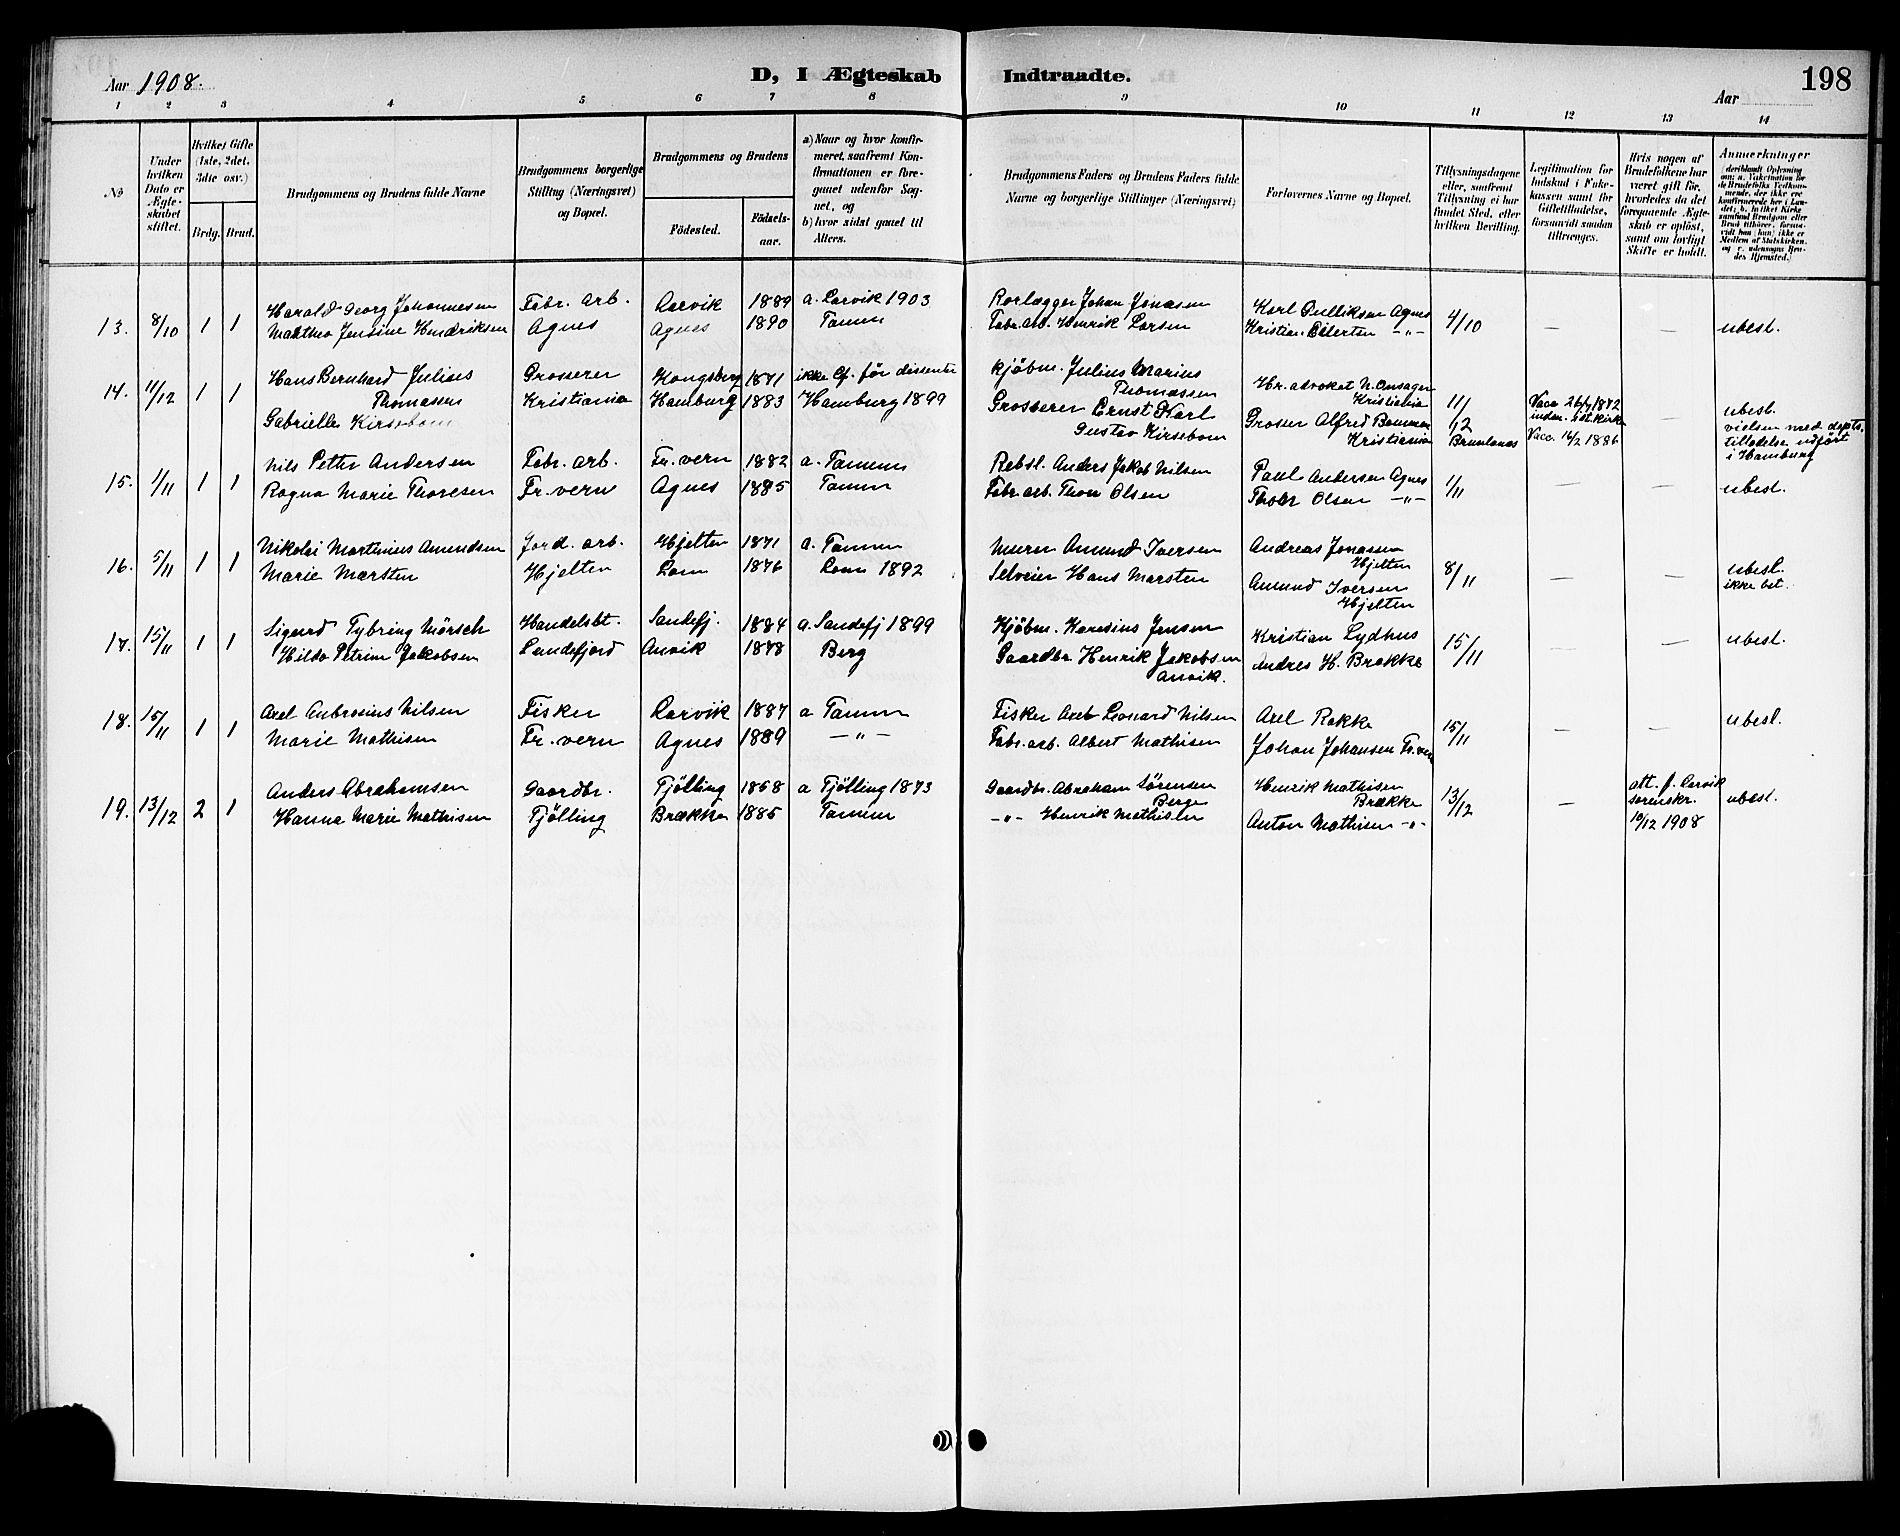 Aar 1908.
D, I Ægteskab Indtraadte.
198
Aar
1 2 3 4 5 6 7 8 9 10 11 12 13 14
No
Under hvilken Dato er Ægteskabet stiftet.
Hvilket Gifte (1ste, 2det, 3dte osv.)
Brdg. Brud.
Brudgommens og Brudens fulde Navne
Brudgommens borgerlige Stilling (Næringsvei) og Bopæl.
Brudgommens og Brudens
Födested.
Födselsaar.
a) Naar og hvor konfirmeret, saafremt Konfirmationen er foregaaet udenfor Sognet, og
b) hvor sidst gaaet til Alters.
Brudgommens Faders og Brudens Faders fulde Navne og borgerlige Stillinger (Næringsvei)
Forlovernes Navne og Bopæl.
Tillysningsdagene eller, saafremt Tillysning ei har fundet Sted, efter hvilken Bevilling.
Legitimation for Indskud i Enkekassen samt for Giftetilladelse, forsaavidt saadan tiltrænges.
Hvis nogen af Brudefolkene har været gift för, hvorledes da det foregaaende Ægteskab er oplöst, samt om lovligt Skifte er holdt.
Anmerkninger
13. 8/10 1 1 Harald Georg Johannesen Fabr. arb. Larvik 1889 a. Larvik 1903 Rorlægger Johan Jonasen Karl Gulliksen Agnes 4/10 — — ubesl.
Marthea Jensine Hendriksen Agnes Agnes 1890 Tanum Fabr. arb. Henrik Larsen Kristian Eilertsen -"-
14. 11/12 1 1 Hans Bernhard Julius Grosserer Kongsberg 1871 ikke Cf. før dissenter Kjøbm. Julius Marius Hr. advokat N. Onsager 11/12 Vacc. 1872 ubesl.
Thomassen Kristiania Hamburg 1883 Hamburg 1899 Thomassen Kristiania inden. st. kirke vielsen med depts.
Gabrielle Kirsebom Grosserer Ernst Karl Grosser Alfred Kristiania Brunlanes Vacc. 16/2 1886 tilladelse udført
Gustav Kirsebom i Hamburg
15. 1/11 1 1 Nils Petter Andersen Fabr. arb. Fr. vern 1882 a. Tanum Rebsl. Anders Jakob Nilsen Paul Andersen Agnes 1/11 — — ubesl.
Ragna Marie Thoresen Fr. vern Agnes 1885 Tanum Fabr. arb. Thor Olsen Thor Olsen -"-
16. 5/11 1 1 Nikolai Martinius Amundsen Jord. arb. Hjelten 1871 a. Tanum Murer Amund Iversen Andreas Jonassen Hjelten 8/11 — — ubesl.
Marie Marsten Hjelten Lom 1876 Lom 1892 Selveier Hans Marsten Amund Iversen Hjelten ikke bet.
17. 15/11 1 1 Sigurd Tybring Mörsch Handelsbt. Sandefj. 1884 a. Sandefj 1899 Kjøbm. Karesius Jensen Kristian Lydhus 15/11 — — ubesl.
Hilda Petrine Jakobsen Sandefjord Anvik 1878 Berg Gaardbr. Henrik Jakobsen Anvik. Andres H. Brække
18. 15/11 1 1 Axel Ambrosius Nilsen Fisker Larvik 1887 a Tanum Fisker Axel Leonard Nilsen Axel Rakke 15/11 — — ubesl.
Marie Mathisen Fr. vern Agnes 1889 -"- Fabr. arb. Albert Mathisen Johan Johansen Fr. vern
19. 13/12 2 1 Anders Abrahamsen Gaardbr. Tjölling 1858 a Tjölling 1873 Gaardbr. Abraham Sørensen Berge Henrik Mathisen Brække 13/12 — att. f. Larvik ubesl.
Hanna Marie Mathisen Tjölling Brække 1885 Tanum -"- Henrik Mathisen Anton Mathisen -"- sorenskr.
10/12 1908